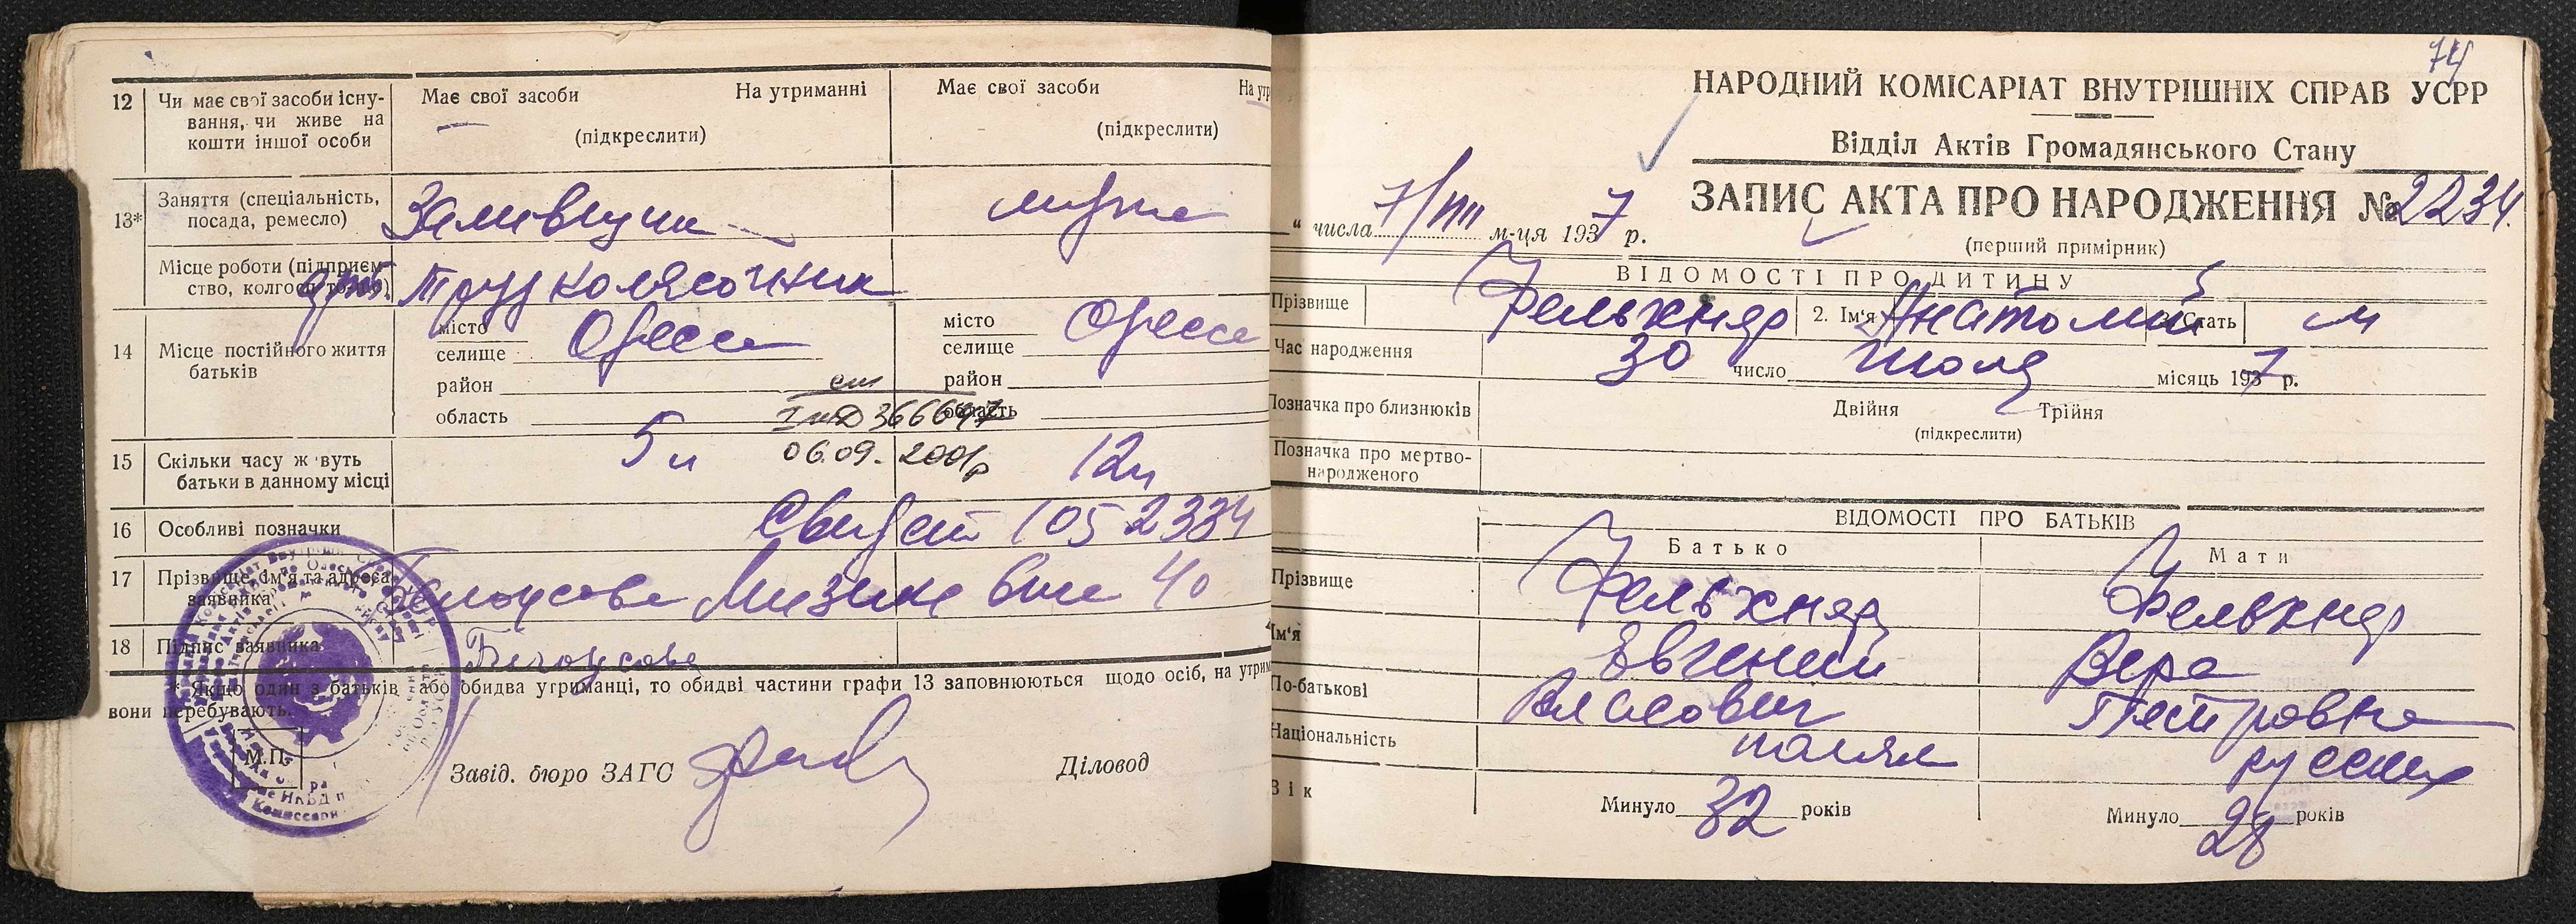 12 Чи має свої засоби існування, чи живе на кошти іншої особи
Має свої засоби На утриманні
(підкреслити)
Має свої засоби На утр
(підкреслити)
13* Заняття (спеціальність, посада, ремесло)
Місце роботи (підприємство, колгосп тощо)
арт. Труд колясочник
14 Місце постійного життя батьків
місто
селище Одесса
район
область
місто
селище Одесса
район
область
ст
І-ЖД 366647
06.09. 2001р
15 Скільки часу живуть батьки в данному місці
5 л 12 л
16 Особливі позначки
Свидет 1052334
17 Прізвище, ім'я та адреса заявника
Белоусова 40
18 Підпис заявника
Белоусова
* Якщо один з батьків або обидва утриманці, то обидві частини графи 13 заповнюються щодо осіб, на утрим
вони перебувають.
М.П.
Завід. бюро ЗАГС
Діловод
74
НАРОДНИЙ КОМІСАРІАТ ВНУТРІШНІХ СПРАВ УСРР
Відділ Актів Громадянського Стану
ЗАПИС АКТА ПРО НАРОДЖЕННЯ № 2234.
" числа 7/VIII м-ця 1937 р.
(перший примірник)
ВІДОМОСТІ ПРО ДИТИНУ
Прізвище Фельхнер 2. Ім'я Анатолий 3. Стать м
Час народження 30 число июля місяць 1937 р.
Позначка про близнюків Двійня Трійня
(підкреслити)
Позначка про мертвонародженого
ВІДОМОСТІ ПРО БАТЬКІВ
Батько Мати
Прізвище Фельхнер Фельхнер
Ім'я Евгений Вера
По-батькові Власович Петровна
Національність поляк русская
Вік Минуло 32 років Минуло 28 років